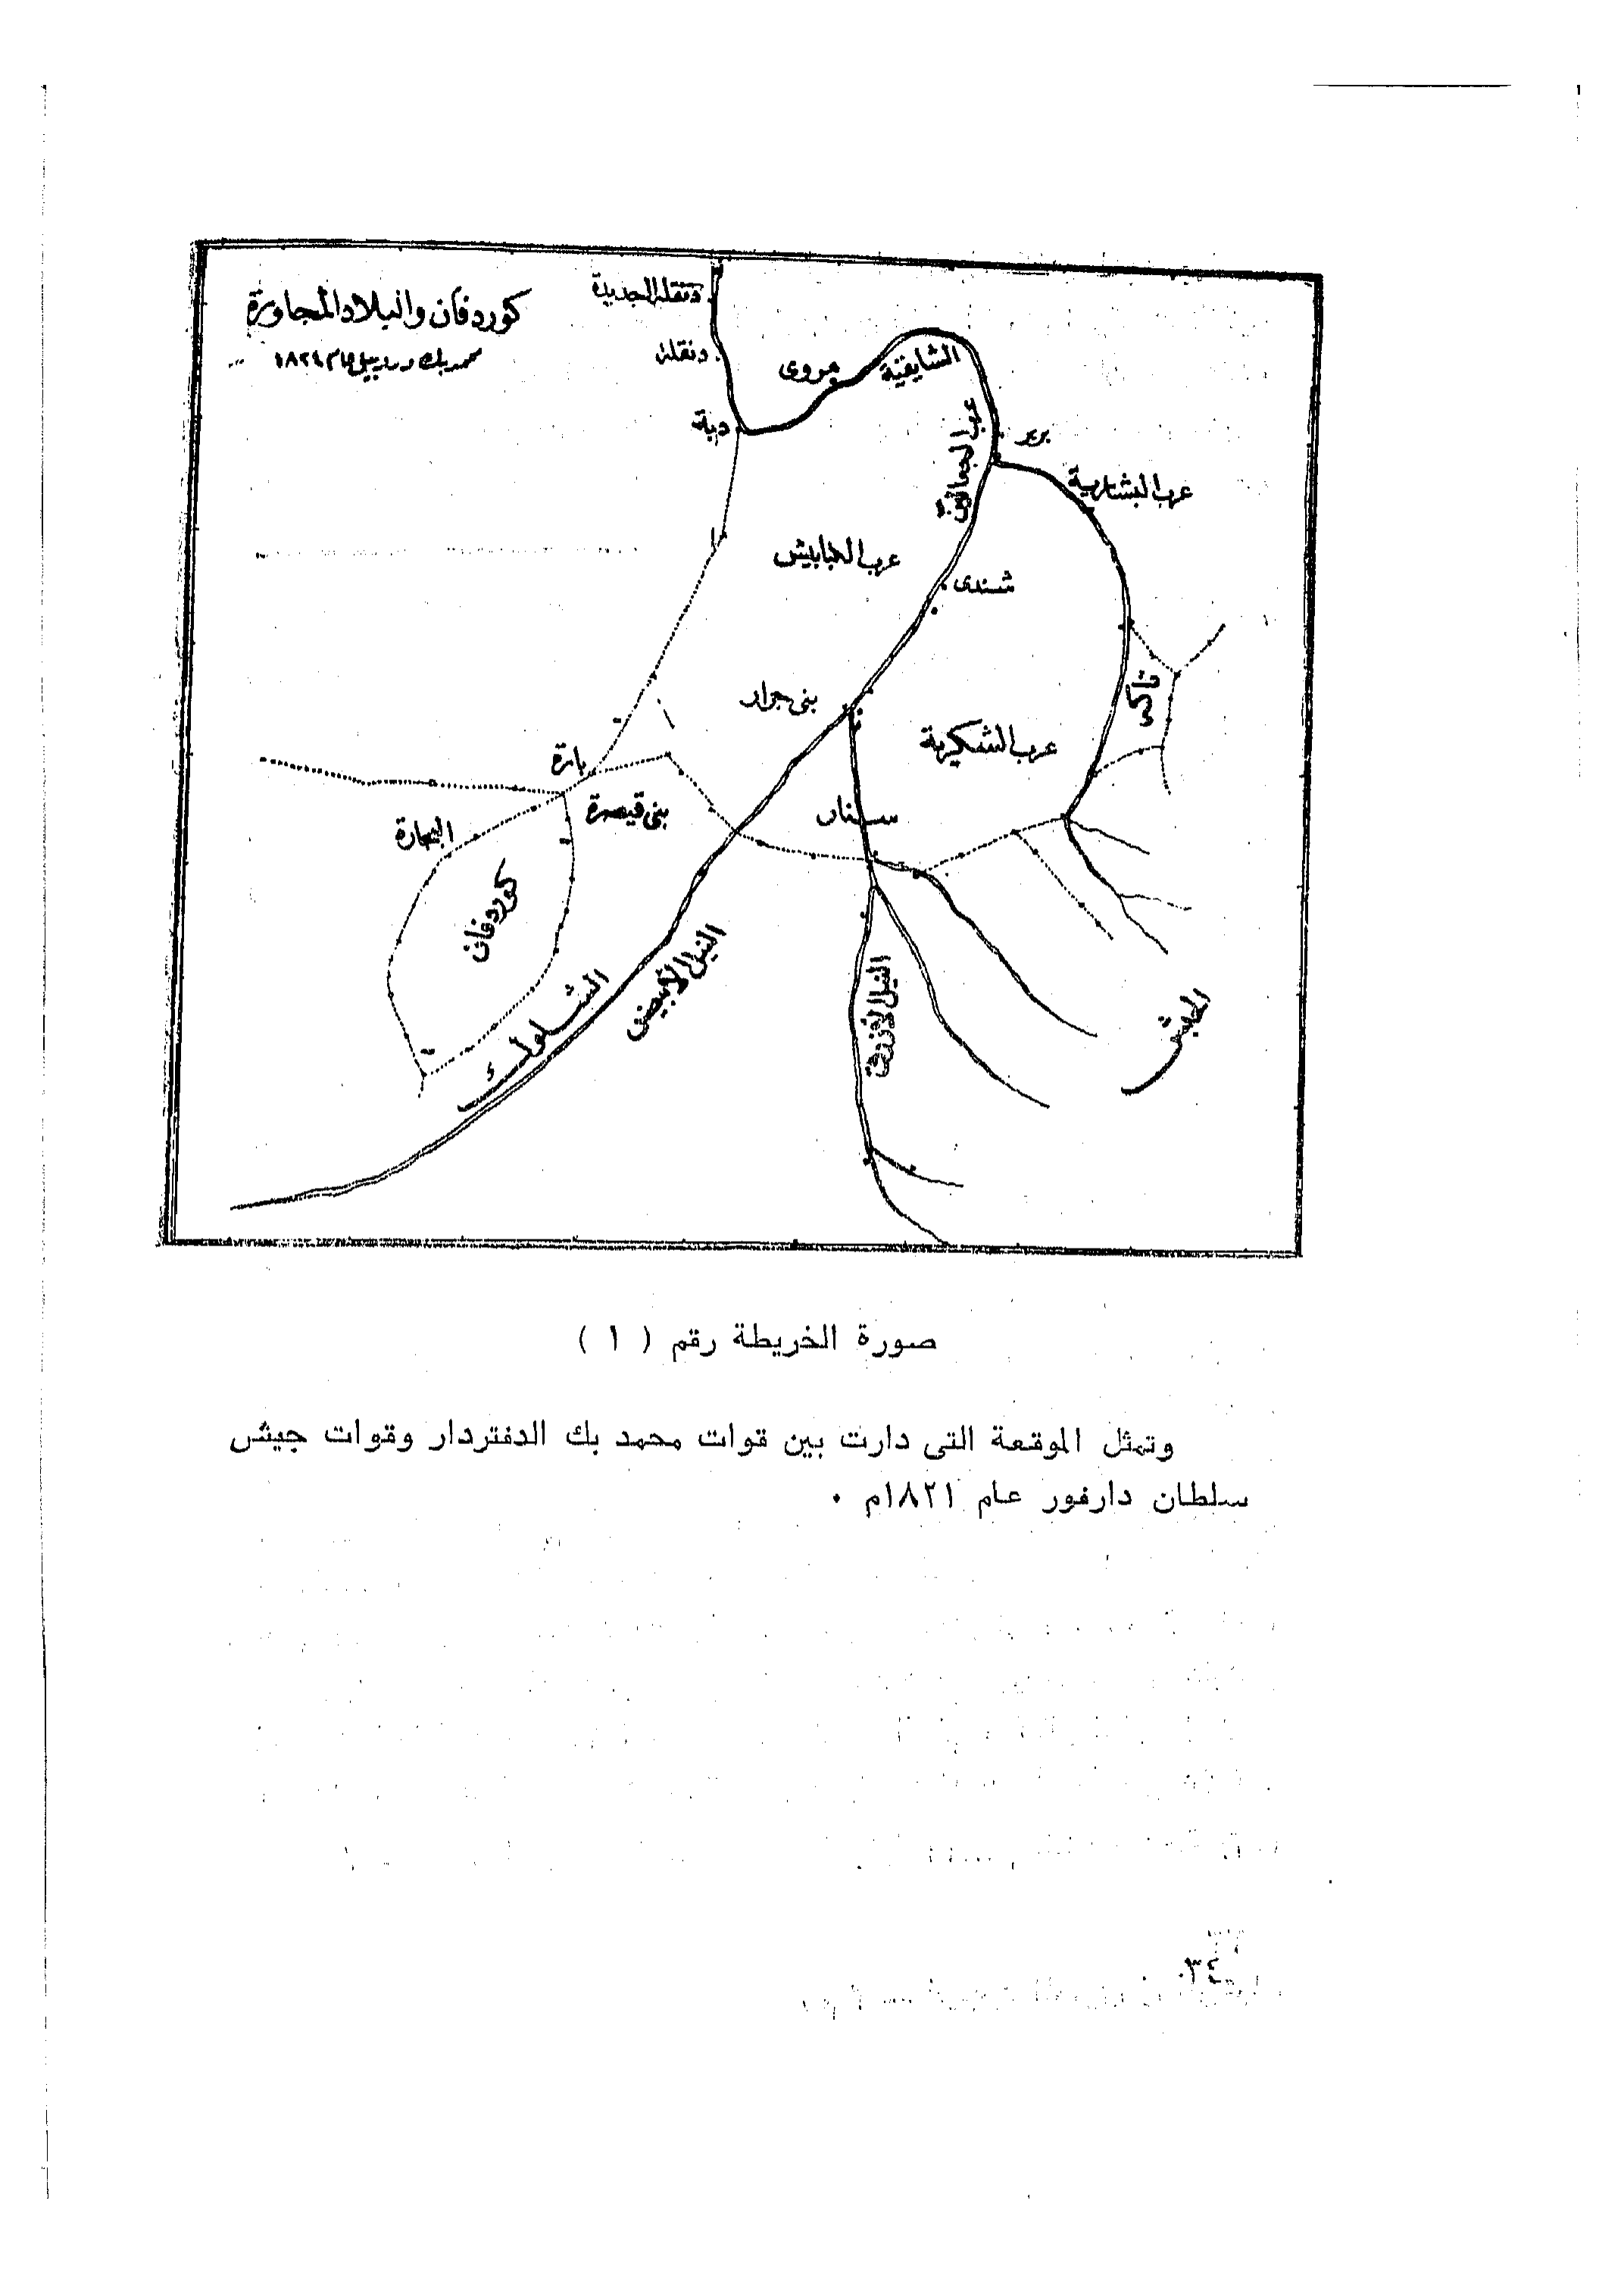 كوردفان والبلاد المجاورة
محمد بك
دنقلة الجديدة
دنقلة
دبة
مروى
الشايقية
بربر
عرب الجعاليين
عرب البشارية
عرب الكبابيش
شندى
تاكى
بنى جرار
عرب الشكرية
بارة
بنى قيصرة
سنار
البجارة
كوردفان
الشلوك
النيل الأبيض
النيل الأزرق
الحبش
صورة الخريطة رقم ( ١ )
وتمثل الموقعة التى دارت بين قوات محمد بك الدفتردار وقوات جيش
سلطان دارفور عام ١٨٢١م .
٣٤